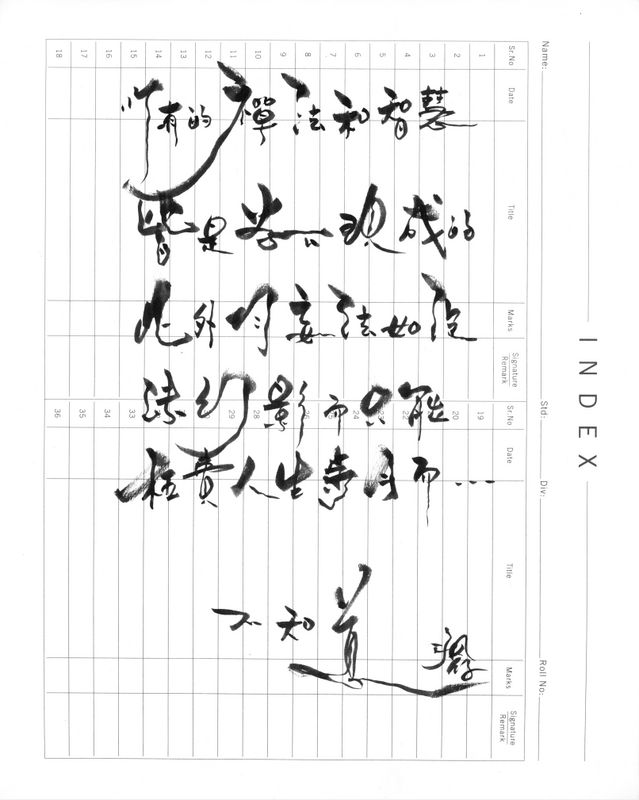 INDEX
Name:
Std:
Div:
Roll No:
Sr.No
Date
Title
Marks
Signature
Remark
Sr.No
Date
Title
Marks
Signature
Remark
1
2
3
4
5
6
7
8
9
10
11
12
13
14
15
16
17
18
19
20
22
23
24
28
29
31
32
33
34
35
36
所有的禪法和智慧
皆是現成的
此外妄法如
法幻影而只能
枉費人生歲月而…
不知道